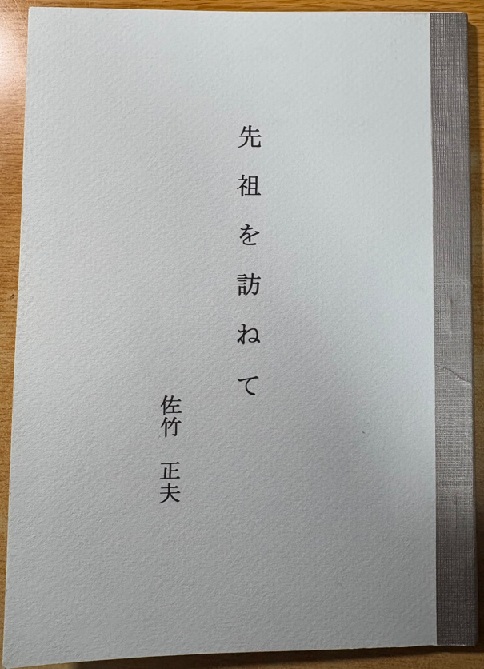 先祖を訪ねて
佐竹 正夫